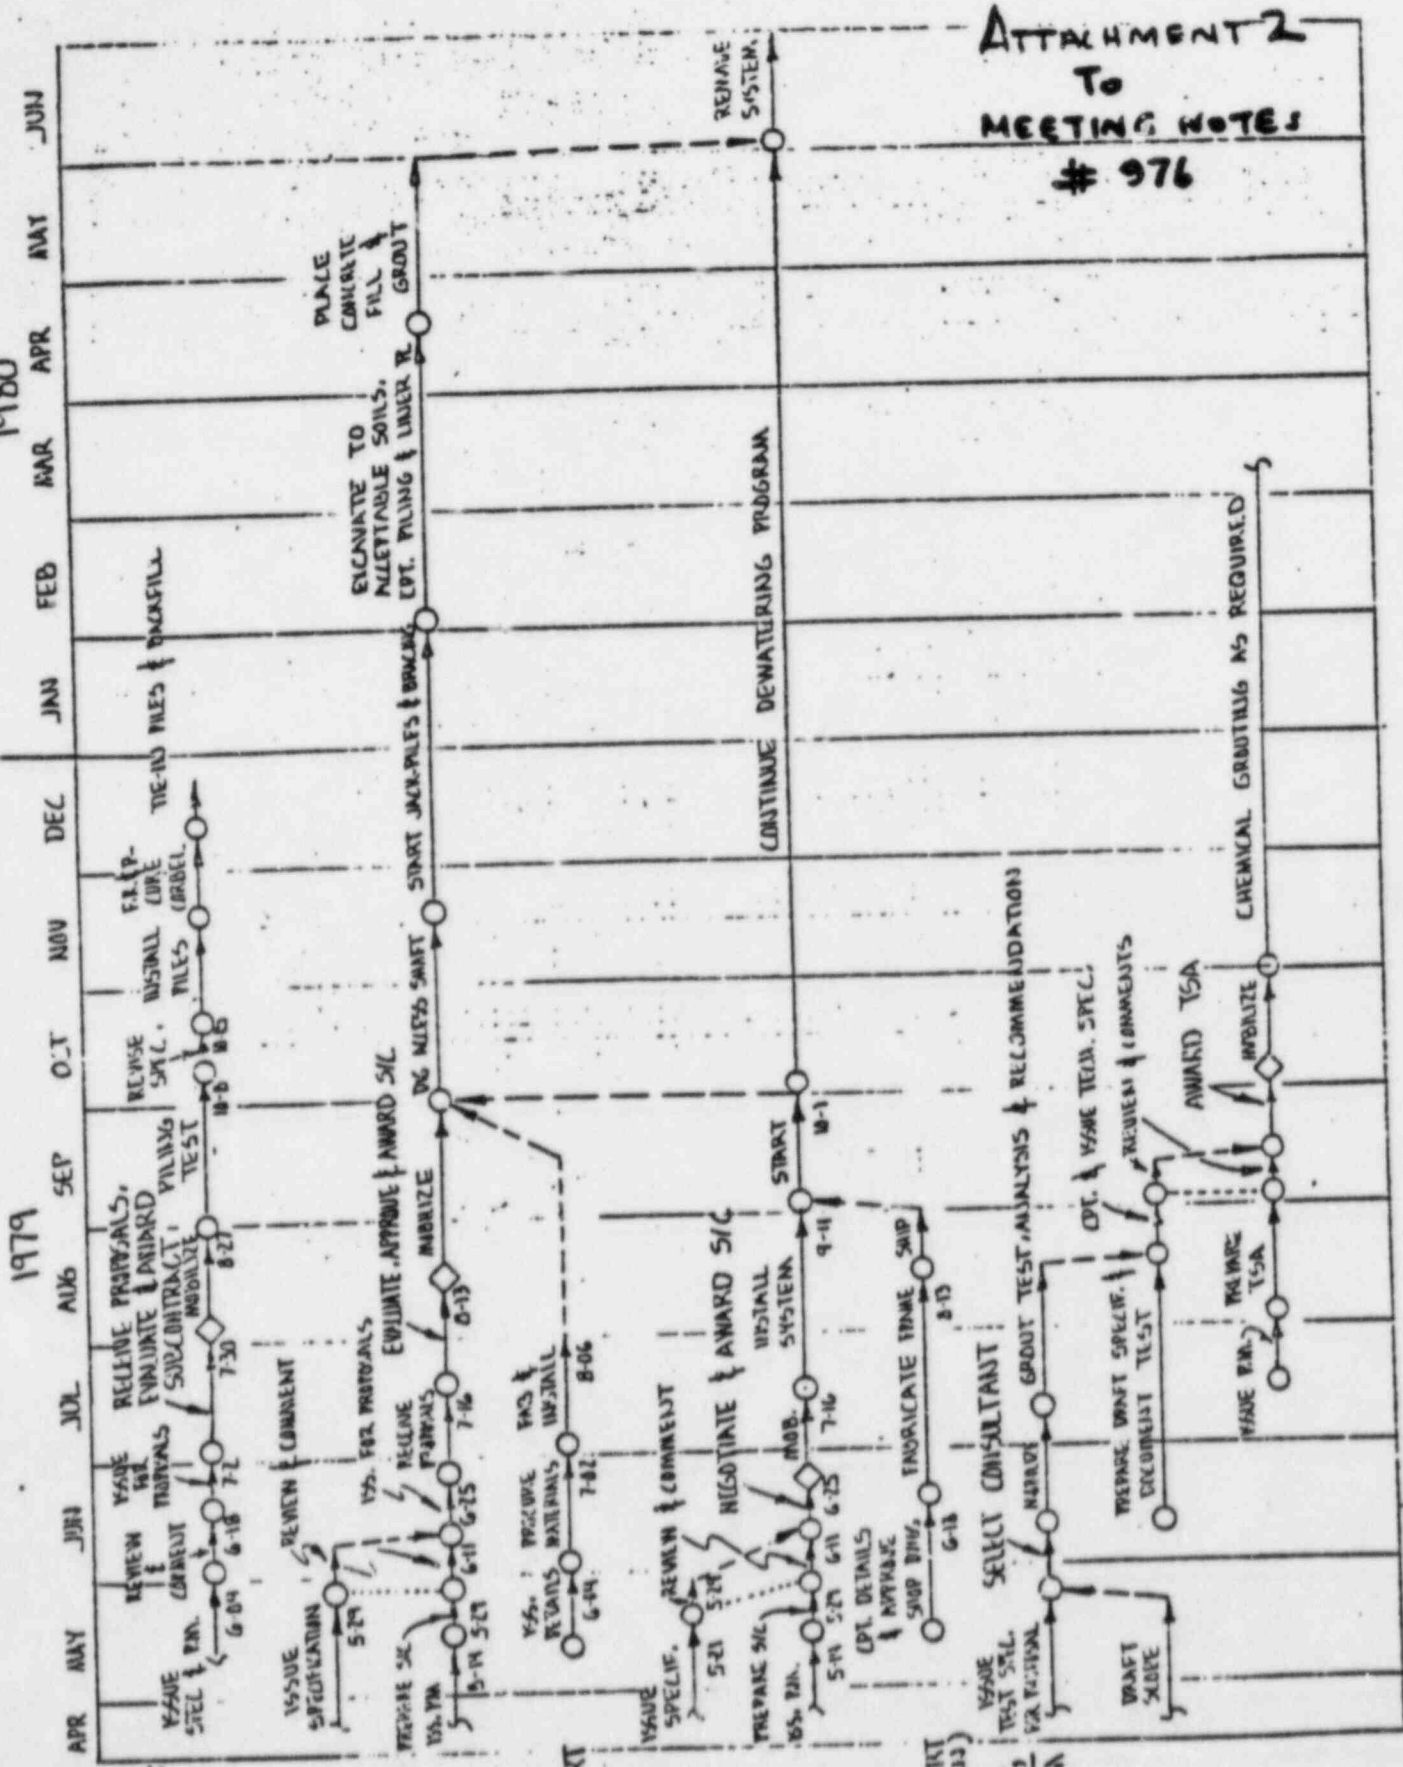 ATTACHMENT 2
TO
MEETING NOTES
# 976
1979
1980
APR
MAY
JUN
JUL
AUG
SEP
OCT
NOV
DEC
JAN
FEB
MAR
APR
MAY
JUN
ISSUE
SPEC & P.M.
6-04
REVIEW
&
COMMENT
6-18
ISSUE
FOR
PROPOSALS
7-2
RECEIVE PROPOSALS,
EVALUATE & AWARD
SUBCONTRACT,
MOBILIZE
7-30
8-27
PILING
TEST
10-8
REVISE
SPEC.
10-15
INSTALL
PILES
CURE
CORBEL
TIE-IN PILES & BACKFILL
ISSUE
SPECIFICATION
5-29
REVIEW & COMMENT
PREPARE S/C
ISS. P.M.
5-14
5-29
6-11
ISS. FOR PROPOSALS
6-25
RECEIVE
PROPOSALS
7-16
EVALUATE, APPROVE & AWARD S/C
8-13
MOBILIZE
DIG ACCESS SHAFT
START JACK-PILES & BRACING
EXCAVATE TO
ACCEPTABLE SOILS,
CPT. PILING & LINER PL
PLACE
CONCRETE
FILL &
GROUT
ISS.
DETAILS
6-04
PROCURE
MATERIALS
7-02
FAB &
INSTALL
8-06
ISSUE
SPECIF.
5-21
REVIEW & COMMENT
5-29
PREPARE S/C
ISS. P.M.
5-14
5-29
6-11
NEGOTIATE & AWARD S/C
6-25
MOB.
7-16
INSTALL
SYSTEM
9-11
START
10-1
CONTINUE DEWATERING PROGRAM
REMOVE
SYSTEM
CPT. DETAILS
& APPROVE
SHOP DWG.
6-18
FABRICATE FRAME
8-13
SHIP
ISSUE
TEST SPEC.
FOR PROPOSAL
DRAFT
SCOPE
SELECT CONSULTANT
GROUT TEST, ANALYSIS & RECOMMENDATION
PREPARE DRAFT SPECIF. &
DOCUMENT TEST
CPT. & ISSUE TECH. SPEC.
REVIEW & COMMENTS
ISSUE P.M.
PREPARE
TSA
AWARD TSA
MOBILIZE
CHEMICAL GROUTING AS REQUIRED